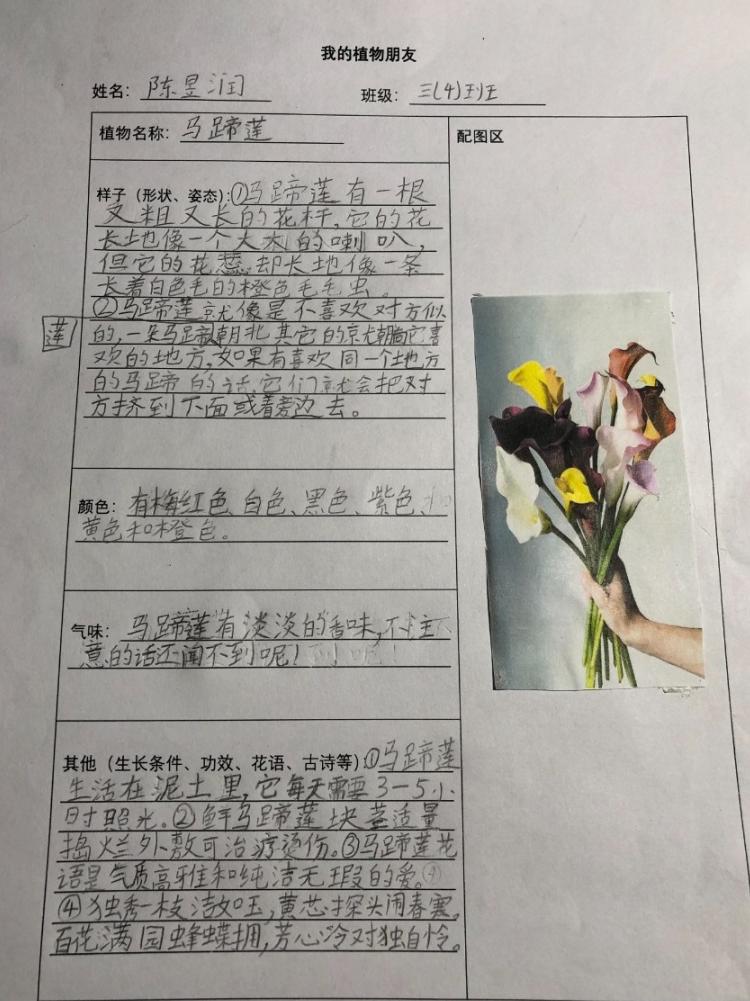 我的植物朋友
姓名：陈昱润 班级：三(4)班
植物名称：马蹄莲
配图区
样子（形状、姿态）：①马蹄莲有一根
又粗又长的花杆，它的花
长地像一个大大的喇叭，
但它的花蕊却长地像一条
长着白色毛的橙色毛毛虫。
②马蹄莲就像是不喜欢对方似
莲
的，一朵马蹄朝北其它的就朝向它喜
欢的地方，如果有喜欢同一个地方
的马蹄的话，它们就会把对
方挤到下面或着旁边去。
颜色：有梅红色、白色、黑色、紫色、
黄色和橙色。
气味：马蹄莲有淡淡的香味，不注
意的话还闻不到呢！
其他（生长条件、功效、花语、古诗等）：①马蹄莲
生活在泥土里，它每天需要3-5小
时照光。②鲜马蹄莲块茎适量
捣烂外敷可治疗烫伤。③马蹄莲花
语是气质高雅和纯洁无瑕的爱。
④独秀一枝洁如玉，黄芯探头闹春寒。
百花满园蜂蝶拥，芳心冷对独自怜。